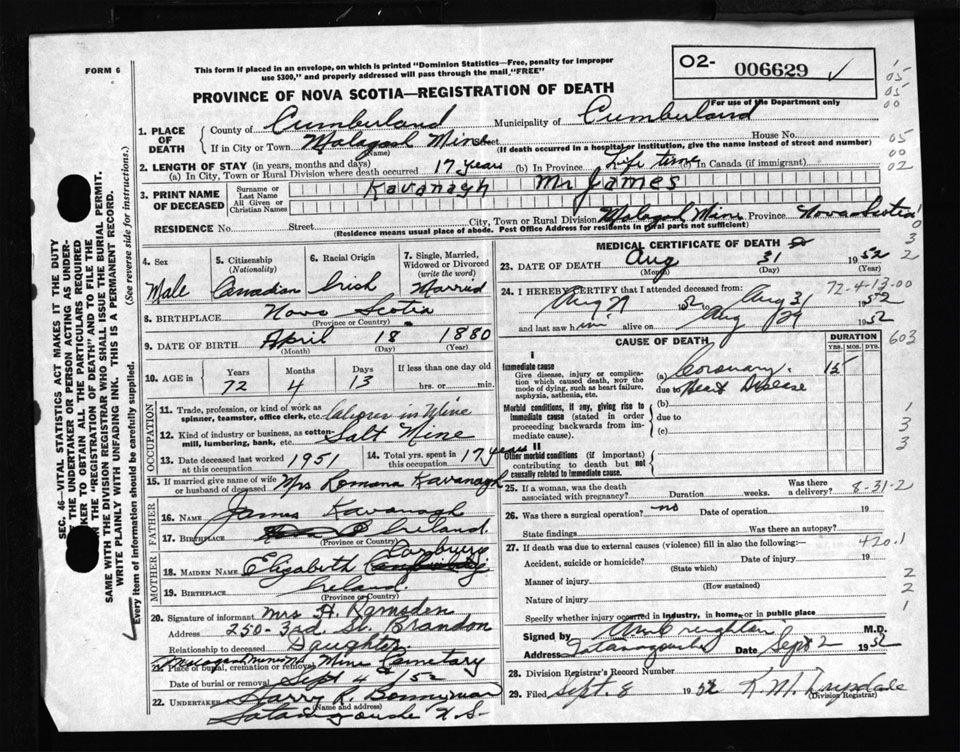 FORM 6
This form if placed in an envelope, on which is printed "Dominion Statistics—Free, penalty for improper
use $300," and properly addressed will pass through the mail "FREE"
PROVINCE OF NOVA SCOTIA—REGISTRATION OF DEATH
O2- 006629 √
For use of the Department only
1. PLACE OF DEATH
County of Cumberland Municipality of Cumberland
If in City or Town Malagash Mine Street House No.
(Name) (If death occurred in a hospital or institution, give the name instead of street and number)
2. LENGTH OF STAY (in years, months and days)
(a) In City, Town or Rural Division where death occurred 17 years (b) In Province Life time (c) In Canada (if immigrant)
3. PRINT NAME OF DECEASED
Surname or Last Name
All Given or Christian Names
Kavanagh Mr James
RESIDENCE No. Street City, Town or Rural Division Malagash Mine Province Nova Scotia
(Residence means usual place of abode. Post Office Address for residents in rural parts not sufficient)
4. Sex Male
5. Citizenship (Nationality) Canadian
6. Racial Origin Irish
7. Single, Married, Widowed or Divorced (write the word) Married
8. BIRTHPLACE Nova Scotia
(Province or Country)
9. DATE OF BIRTH April 18 1880
(Month) (Day) (Year)
10. AGE in Years Months Days If less than one day old
72 4 13 hrs. or min.
OCCUPATION
11. Trade, profession, or kind of work as
spinner, teamster, office clerk, etc. in Mine
12. Kind of industry or business, as cotton-
mill, lumbering, bank, etc. Salt Mine
13. Date deceased last worked at this occupation 1951
14. Total yrs. spent in this occupation 17 years
15. If married give name of wife
or husband of deceased Mrs Romona Kavanagh
FATHER
16. Name James Kavanagh
17. Birthplace Ireland.
(Province or Country)
MOTHER
18. Maiden Name Elizabeth
19. Birthplace Ireland.
(Province or Country)
20. Signature of informant Mrs H. Ramsden
Address 250-3rd. St. Brandon
Relationship to deceased Daughter
21. Place of burial, cremation or removal Malagash Mine Cemetary
Date of burial or removal Sept 4 52
22. UNDERTAKER Harry R. Bonnyman
(Name and address)
Tatamagouche N.S.
MEDICAL CERTIFICATE OF DEATH
23. DATE OF DEATH Aug 31 1952
(Month) (Day) (Year)
72-4-13-00
24. I HEREBY CERTIFY that I attended deceased from:
Aug 29 Aug 31 1952
and last saw him alive on Aug 29 1952
CAUSE OF DEATH
DURATION
YRS. MOS. DYS.
I
Immediate cause
Give disease, injury or complica-
tion which caused death, NOT the
mode of dying, such as heart failure,
asphyxia, asthenia, etc.
(a) Coronary. 15
due to Heart Disease
Morbid conditions, if any, giving rise to
immediate cause (stated in order
proceeding backwards from im-
mediate cause).
(b)
due to
(c)
II
Other morbid conditions (if important)
contributing to death but not
causally related to immediate cause.
25. If a woman, was the death
associated with pregnancy? Duration weeks. Was there a delivery? 8-31-2
26. Was there a surgical operation? no Date of operation 19
State findings Was there an autopsy?
27. If death was due to external causes (violence) fill in also the following:— 420.1
Accident, suicide or homicide? Date of injury 19
(State which)
Manner of injury
(How sustained)
Nature of injury
Specify whether injury occurred in industry, in home, or in public place
Signed by M.D.
Address Tatamagouche Date Sept 2 1952
28. Division Registrar's Record Number
29. Filed Sept. 8 1952 K.M. Drysdale
(Division Registrar)
SEC. 46—VITAL STATISTICS ACT MAKES IT THE DUTY
OF THE UNDERTAKER OR PERSON ACTING AS UNDER-
TAKER TO OBTAIN ALL THE PARTICULARS REQUIRED
IN THE "REGISTRATION OF DEATH" AND TO FILE THE
SAME WITH THE DIVISION REGISTRAR WHO SHALL ISSUE THE BURIAL PERMIT.
WRITE PLAINLY WITH UNFADING INK. THIS IS A PERMANENT RECORD.
Every item of information should be carefully supplied. (See reverse side for instructions.)
05
05
00
05
00
02
0
3
2
603
1
3
3
2
2
1